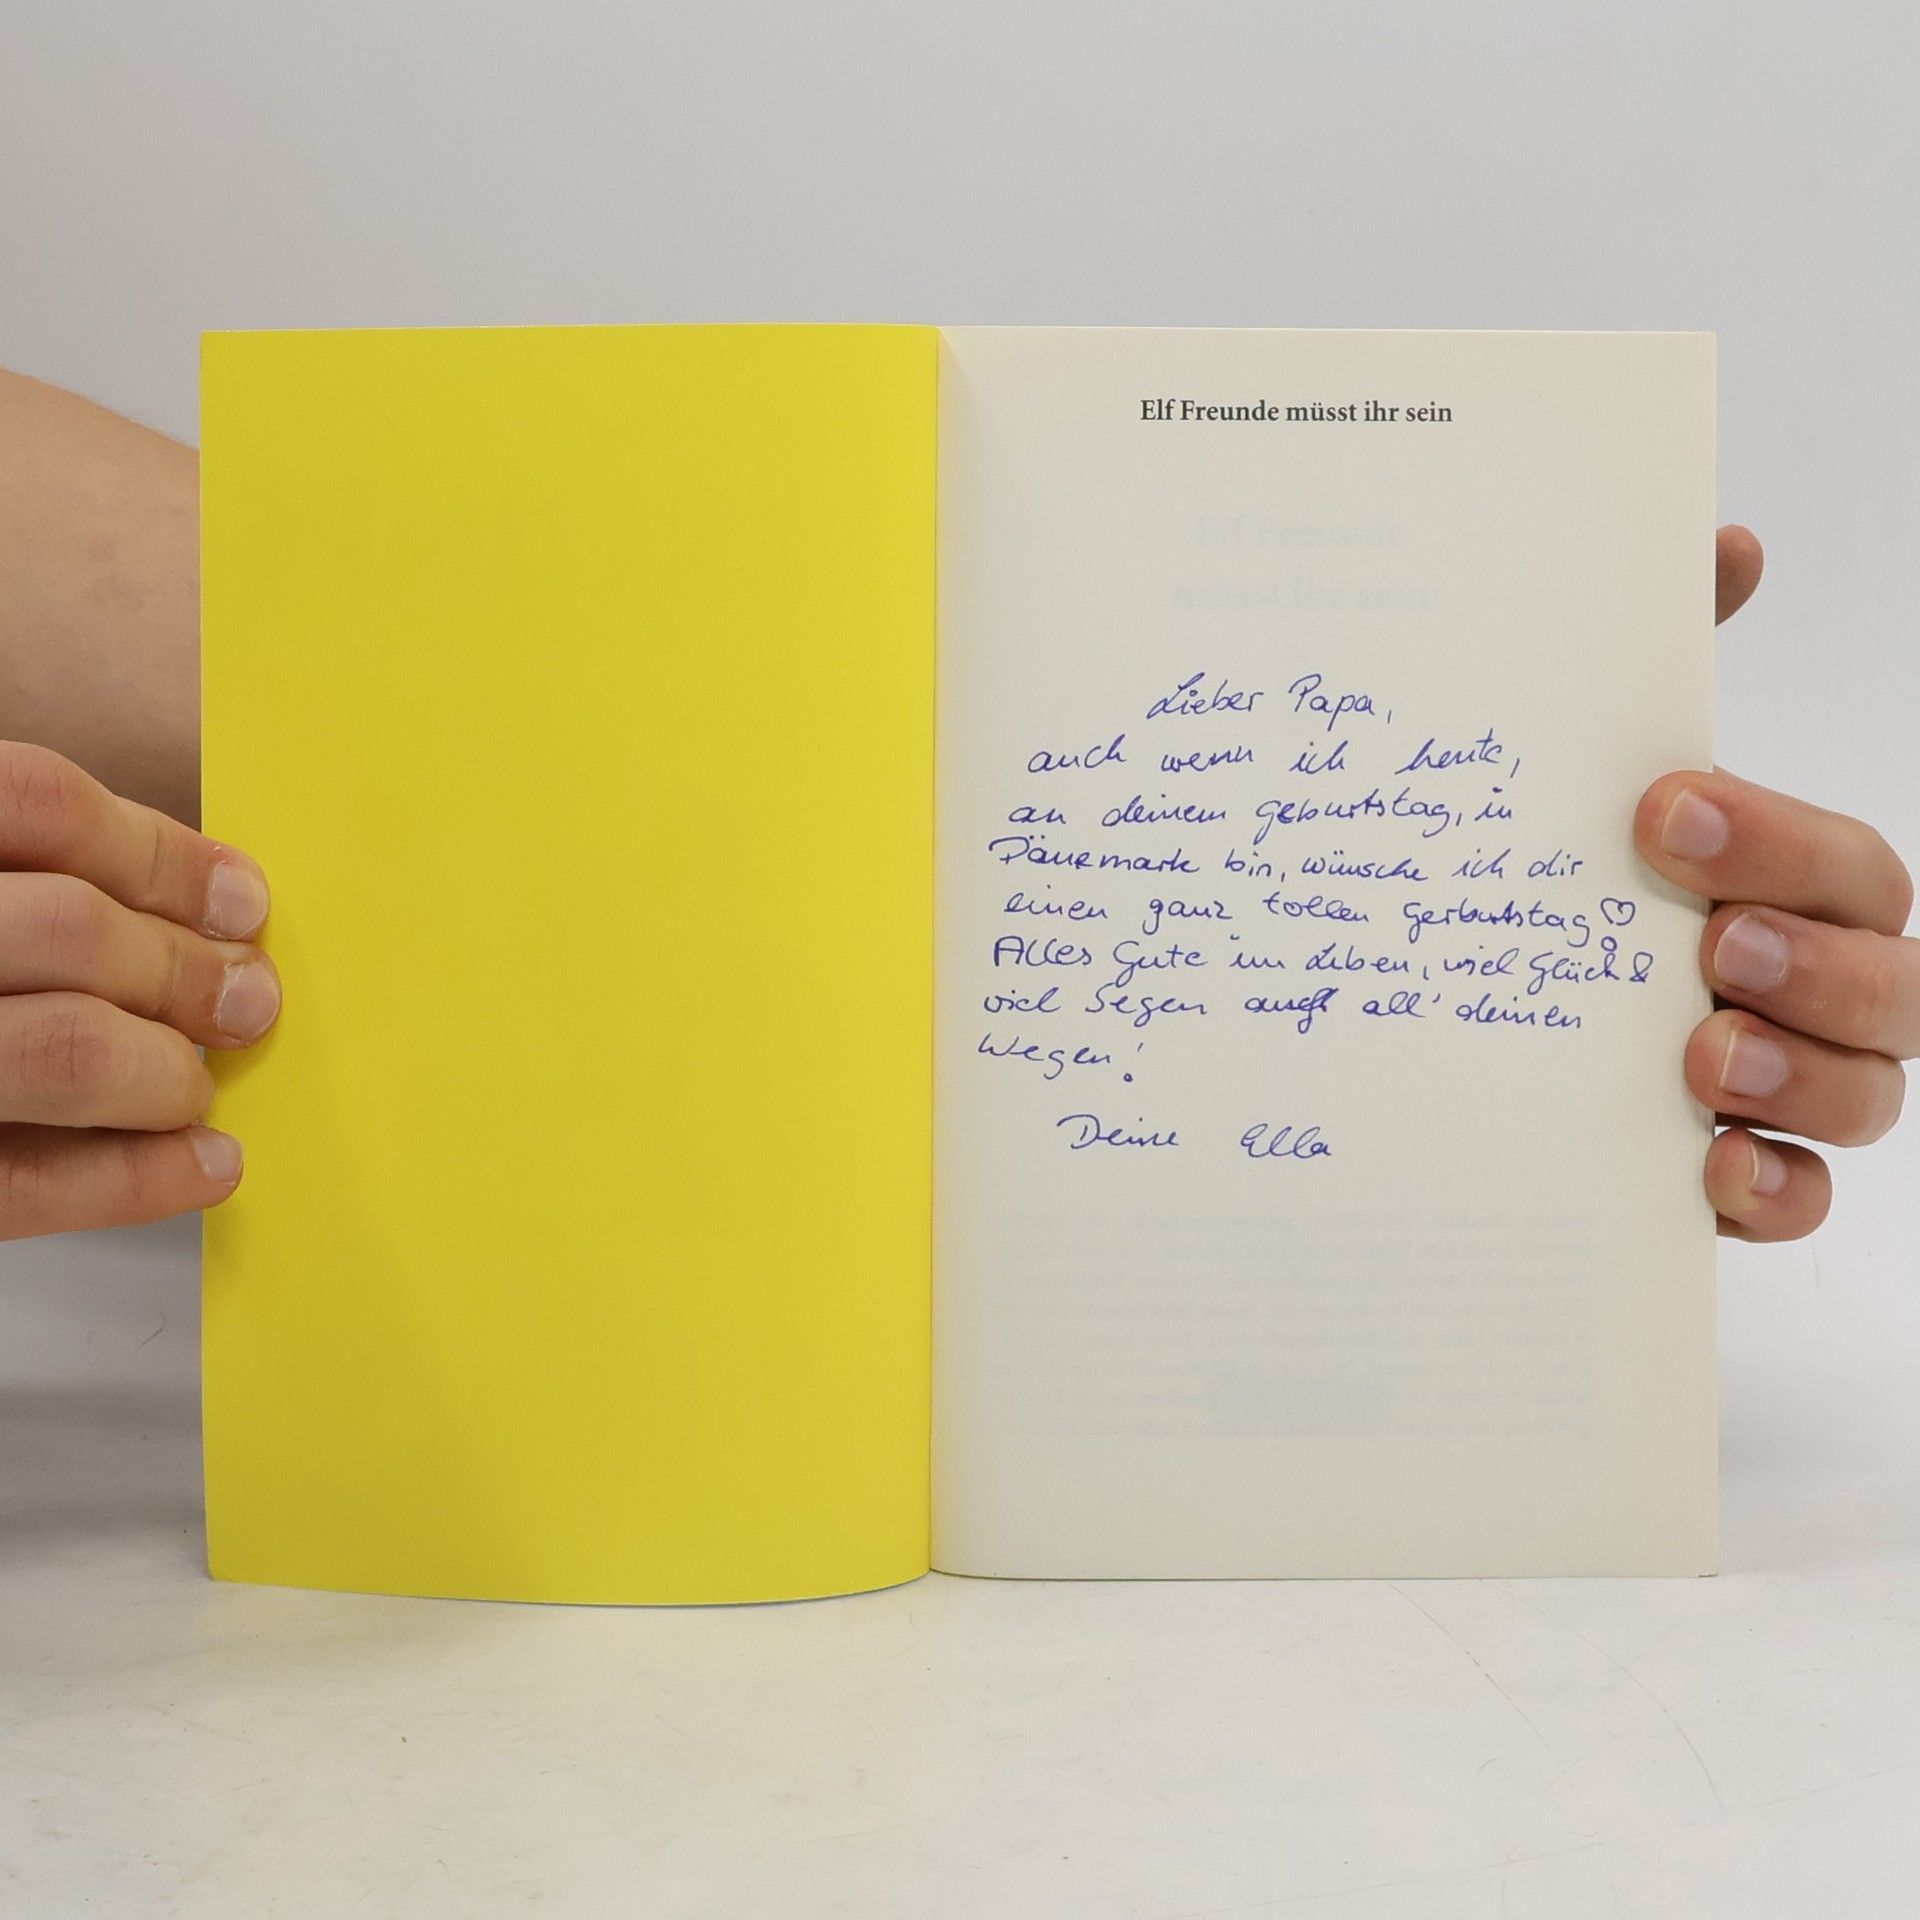 Elf Freunde müsst ihr sein
Elf Freunde
müsst ihr sein
Lieber Papa,
auch wenn ich heute,
an deinem Geburtstag, in
Dänemark bin, wünsche ich dir
einen ganz tollen Gerburtstag♡
Alles Gute im Leben, viel Glück &
viel Segen auf all' deinen
Wegen!
Deine Ella